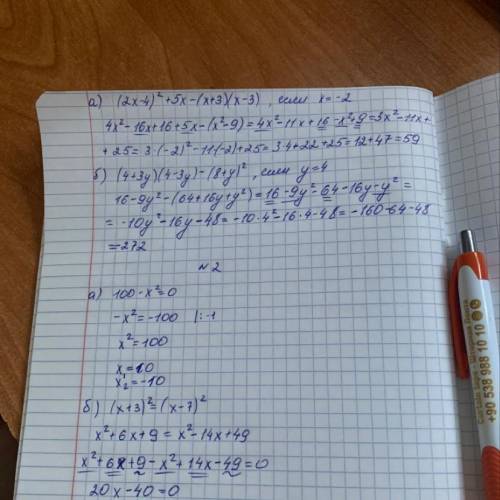 а) (2x-4)²+5x-(x+3)(x-3), если x=-2
4x²-16x+16+5x-(x²-9)=4x²-11x+16-x²+9=3x²-11x+
+25=3·(-2)²-11(-2)+25=3·4+22+25=12+47=59
б) (4+3y)(4-3y)-(8+y)², если y=4
16-9y²-(64+16y+y²)=16-9y²-64-16y-y²=
=-10y²-16y-48=-10·4²-16·4-48=-160-64-48
=272
№2
а) 100-x²=0
-x²=-100 |:-1
x²=100
x₁=10
x₂=-10
б) (x+3)²=(x-7)²
x²+6x+9=x²-14x+49
x²+6x+9-x²+14x-49=0
20x-40=0
+90 538 988 10 01